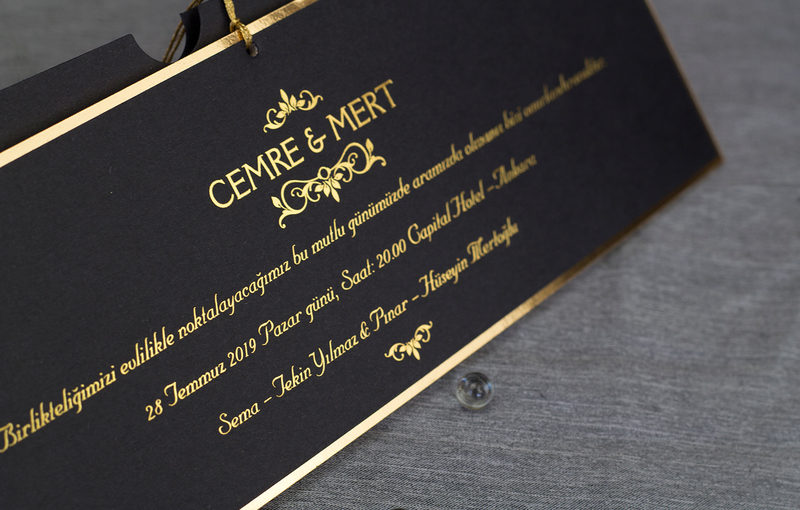 CEMRE & MERT
Birlikteliğimizi evlilikle noktalayacağımız bu mutlu günümüzde aramızda olmanız bizi
28 Temmuz 2019 Pazar günü, Saat: 20.00 Capital Hotel - Ankara
Sema - Tekin Yılmaz & Pınar - Hüseyin Mertoğlu